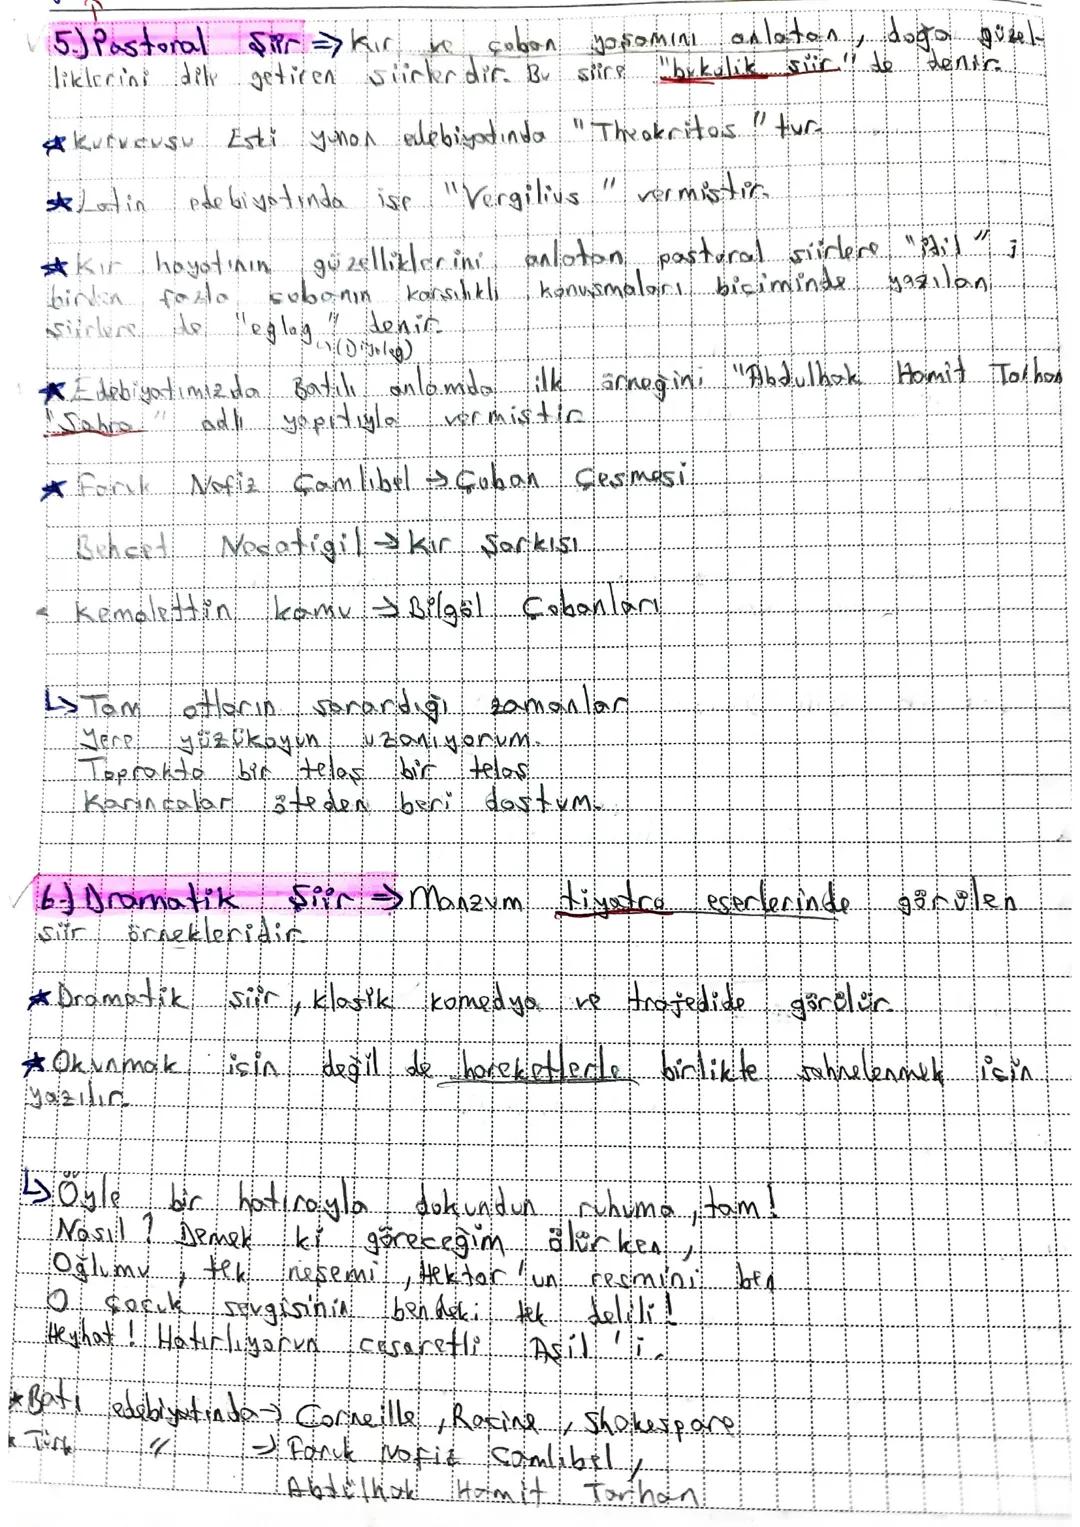 5.) Pastoral Şiir ⇒ Kır ve çoban yaşamını anlatan, doğa güzel-
liklerini dile getiren şiirlerdir. Bu şiire "bukolik şiir" de denir.
★ Kurucusu Eski yunan edebiyatında "Theokritos" tur.
★ Latin edebiyatında ise "Vergilius" vermiştir.
★ Kır hayatının güzelliklerini anlatan pastoral şiirlere "idil" ;
birden fazla çobanın karşılıklı konuşmaları biçiminde yazılan
şiirlere de "eglog" denir.
↳(Diyalog)
★ Edebiyatımızda Batılı anlamda ilk örneğini "Abdulhak Hamit Tarhan
"Sahra" adlı yapıtıyla vermiştir.
★ Faruk Nafiz Çamlıbel → Çoban Çeşmesi
Behçet Necatigil → Kır Şarkısı
Kemalettin kamu → Bilgöl Çobanları
↳ Tam otların sarardığı zamanlar
Yere yüzükoyun uzanıyorum.
Toprakta bir telaş bir telaş
Karıncalar öteden beri dostum.
6.) Dramatik Şiir ⇒ Manzum tiyatro eserlerinde görülen
şiir örnekleridir.
★ Dramatik şiir, klasik komedya ve trajedide görülür.
★ Okunmak için değil de hareketlerle birlikte sahnelenmek için
yazılır.
↳ Öyle bir hatırayla dokundun ruhuma, tam!
Nasıl? Demek ki göreceğim ölürken,
Oğlumu, tek neşemi, Hektor'un resmini ben
O çocuk sevgisinin bendeki tek delili!
Heyhat! Hatırlıyorun cesaretli Aşil'i.
★ Batı edebiyatında → Corneille, Racine, Shakespare
★ Türk " → Faruk Nafiz Çamlıbel,
Abdülhak Hamit Tarhan